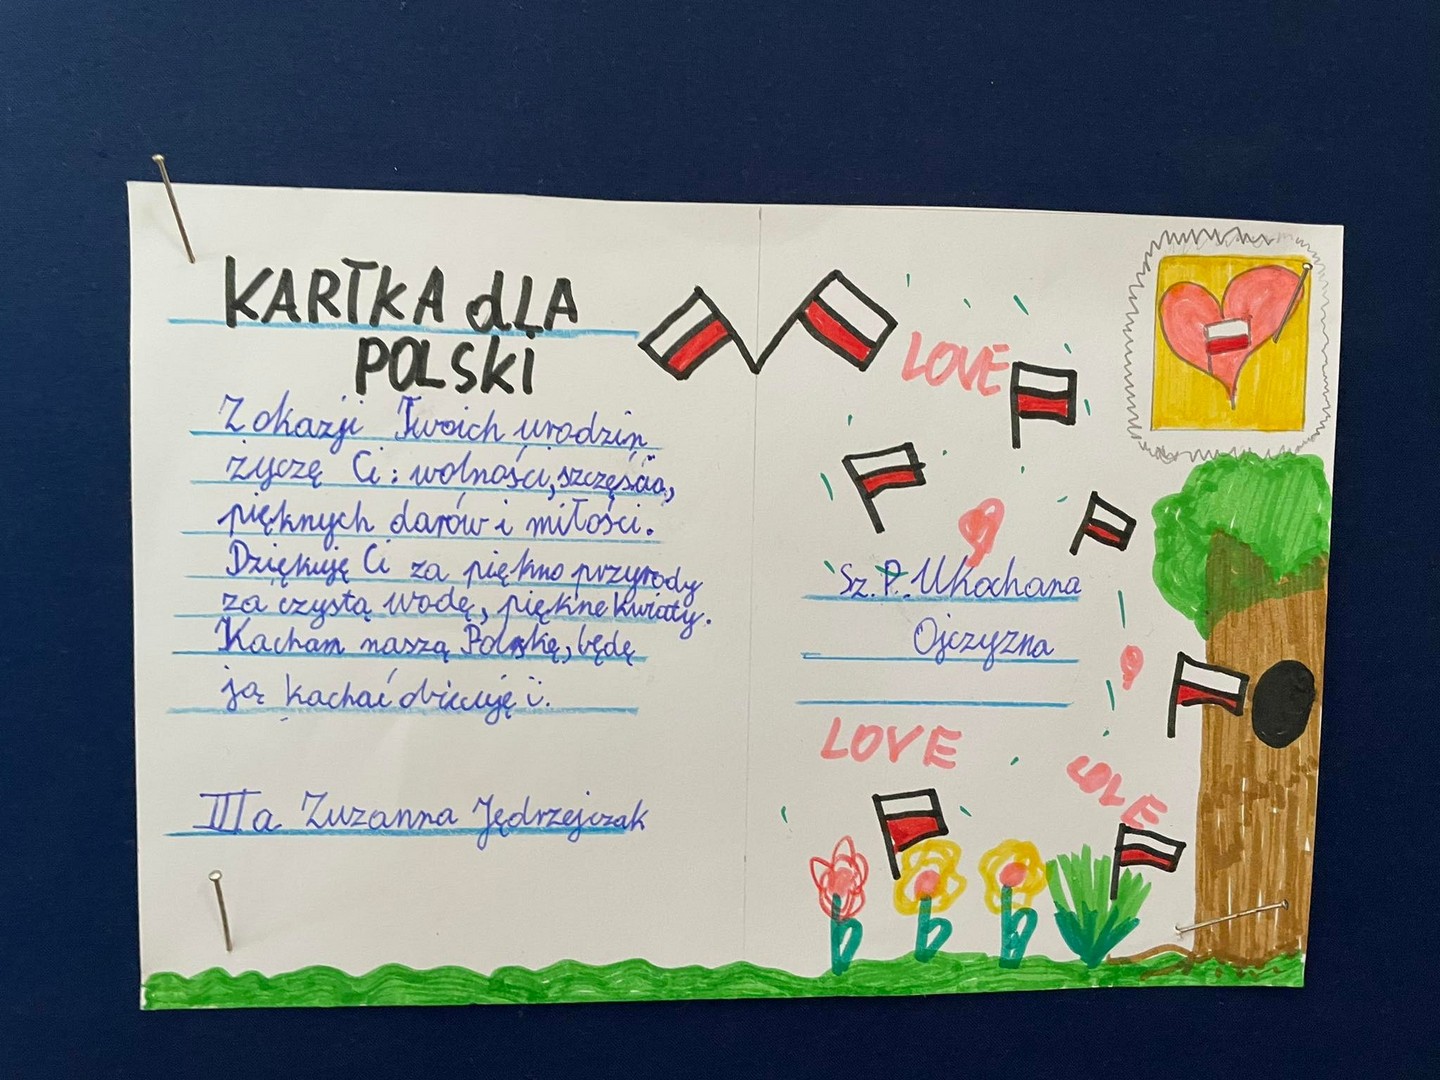 KARTKA dLA
POLSKI
Z okazji Twoich urodzin
życzę Ci: wolności, szczęścia,
pięknych darów i miłości.
Dziękuję Ci za piękno przyrody
za czystą wodę, piękne kwiaty.
Kocham naszą Polskę, będę
ją kochać obiecuję
IIIa Zuzanna Jędrzejczak
LOVE
Sz. P. Ukochana
Ojczyzna
LOVE
LOVE